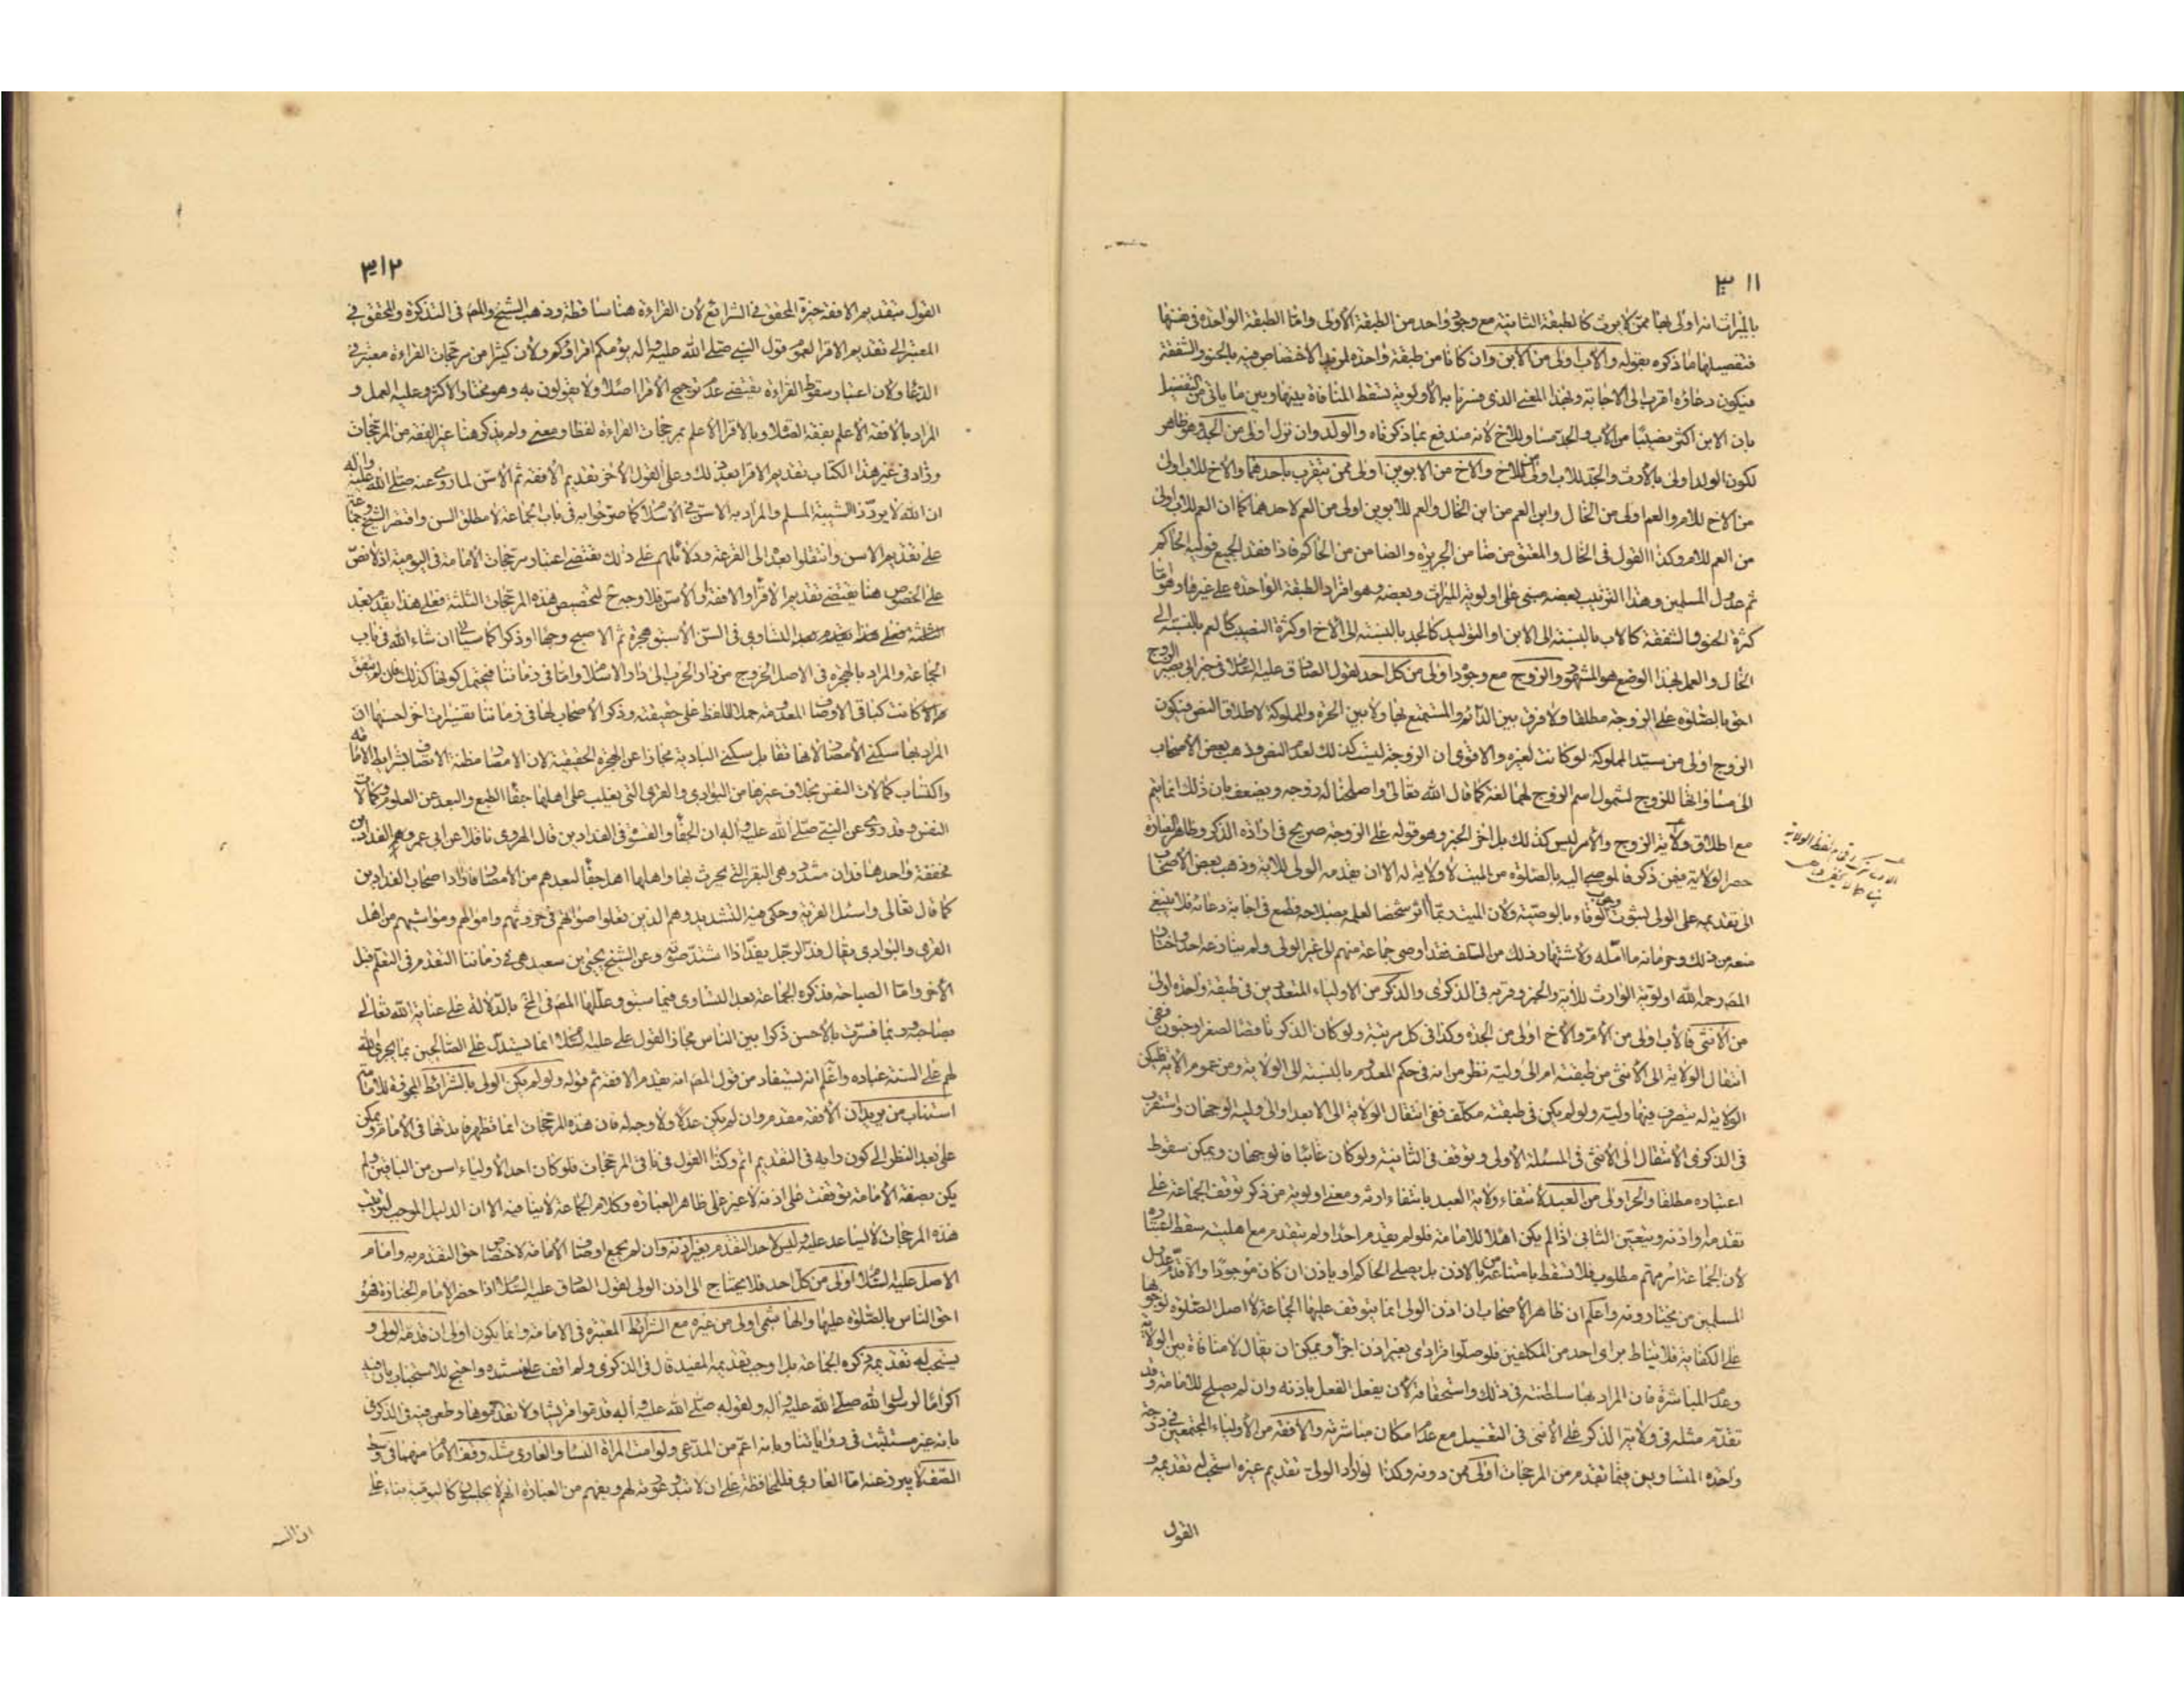 ٣١١
بالميراث انه اولى بها ممن لا يرث كالطبقة الثانية مع وجود واحد من الطبقة الاولى واما الطبقة الواحدة في نفسها
فتفصيلها ما ذكره بقوله والاب اولى من الابن وان كانا من طبقة واحدة لمزيد الاختصاص فيه بالحنو والشفقة
فيكون دعاؤه اقرب الى الاجابة وبهذا المعنى الذي فسرنا به الاولوية تسقط المنافاة بينها وبين ما يأتي من التفضيل
بان الابن اكثر نصيبا من الاب والجد مساو للاخ لانه مندفع بما ذكرناه والولد وان نزل اولى من الجد وهو ظاهر
لكون الولد اولى بالارث والجد للاب اولى من الاخ والاخ من الابوين اولى ممن يتقرب باحدهما والاخ للاب اولى
من الاخ للام والعم اولى من الخال وابن العم من ابن الخال والعم للابوين اولى من العم لاحدهما كما ان العم للاب اولى
من العم للام وكذا القول في الخال والمعتق من ضامن الجريرة والضامن من الحاكم فاذا فقد الجميع فوليه الحاكم
ثم عدول المسلمين وهذا الترتيب بعضه مبني على اولوية الميراث وبعضه وهو افراد الطبقة الواحدة على غيرها وهو اما
كثرة الحنو والشفقة كالاب بالنسبة الى الابن او التوليد كالجد بالنسبة الى الاخ او كثرة النصيب كالعم بالنسبة الى
الخال والعمل بهذا الوضع هو المشهور والزوج مع وجوده اولى من كل احد لقول الصادق عليه السلام في خبر ابي بصير الزوج
احق بالصلوة على الزوجة مطلقا ولا فرق بين الدائم والمستمتع بها ولا بين الحرة والمملوكة لاطلاق النص فيكون
الزوج اولى من سيد المملوكة لو كانت لغيره والاقوى ان الزوجة ليست كذلك لعدم النص وذهب بعض الاصحاب
الى مساواتها للزوج لشمول اسم الزوج لهما لغة كما قال الله تعالى واصلحنا له زوجه ويضعف بان ذلك انما يتم
مع اطلاق ولاية الزوج والامر ليس كذلك بل اخر الخبر وهو قوله على الزوجة صريح في ارادة الذكر وظاهر العبارة
حصر الولاية فيمن ذكر فالموصى اليه بالصلوة من الميت لا ولاية له الا ان يقدمه الولي للاية وذهب بعض الاصحاب
الى تقديمه على الولي لثبوت وجوب الوفاء بالوصية ولان الميت ربما اثر شخصا لعلمه بصلاحه فطمع في اجابة دعائه فلا ينبغي
منعه من ذلك وحرمانه ما امله ولاشتهار ذلك من السلف فقد اوصى جماعة منهم الى غير الولي ولم ينازعه احد واختار
المص رحمه الله اولوية الوارث للاية والخبر وقربه في الذكرى والذكر من الاولياء المتعددين في طبقة واحدة اولى
من الانثى فالاب اولى من الام والاخ اولى من الجدة وكذا في كل مرتبة ولو كان الذكر ناقصا لصغر او جنون ففي
انتقال الولاية الى الانثى من طبقته ام الى وليه نظر من انه في حكم المعدوم بالنسبة الى الولاية ومن عموم الاية فلتكن
الولاية له يتصرف فيها وليه ولو لم يكن في طبقته مكلف ففي انتقال الولاية الى الابعد او الى وليه الوجهان واستقرب
في الذكرى الانتقال الى الانثى في المسئلة الاولى وتوقف في الثانية ولو كان غائبا فالوجهان ويمكن سقوط
اعتباره مطلقا والحر اولى من العبد لانتفاء ولاية العبد بانتفاء ارثه ومعنى اولوية من ذكر توقف الجماعة على
تقدمه او اذنه ويتعين الثاني اذا لم يكن اهلا للامامة فلو لم يقدم احدا ولم يتقدم مع اهليته سقط اعتباره
لان الجماعة امر مهم مطلوب فلا تسقط بامتناعه من الاذن بل يصلي الحاكم او ياذن ان كان موجودا والا قدم عدول
المسلمين من يختارونه واعلم ان ظاهر الاصحاب ان اذن الولي انما يتوقف عليها الجماعة لا اصل الصلوة لوجوبها
على الكفاية فلا يناط براى احد من المكلفين فلو صلوا فرادى بغير اذن اجزأ ويمكن ان يقال لا منافاة بين الولاية
وعدم المباشرة فان المراد بها سلطنته في ذلك واستحقاقه لان يفعل الفعل باذنه وان لم يصلح للامامة وقد
تقدم مثله في ولاية الذكر على الانثى في التغسيل مع عدم امكان مباشرته والافقه من الاولياء المجتمعين في درجة
واحدة المتساوين فيما تقدم من المرجحات اولى ممن دونه وكذا لو اراد الولي تقديم غيره استحب له تقديمه و
القول
٣١٢
القول بتقديم الافقه خيرة المحقق في الشرائع لان القراءة هنا ساقطة وذهب الشيخ والمص في التذكرة والمحقق في
المعتبر الى تقديم الاقرأ لعموم قول النبي صلى الله عليه وآله يؤمكم اقرؤكم ولان كثيرا من مرجحات القراءة معتبر في
الدعاء ولان اعتبار سقوط القراءة يقتضي عدم ترجيح الاقرأ اصلا ولا يقولون به وهو مختار الاكثر وعليه العمل و
المراد بالافقه الاعلم بفقه الصلاة وبالاقرأ الاعلم بمرجحات القراءة لفظا ومعنى ولم يذكر هنا غير الفقه من المرجحات
وزاد في غير هذا الكتاب تقديم الاقرأ بعد ذلك وعلى القول الاخر تقديم الافقه ثم الاسن لما روي عنه صلى الله عليه وآله
ان الله لا يرد دعاء ذي الشيبة المسلم والمراد به الاسن في الاسلام كما صرحوا به في باب الجماعة لا مطلق السن واقتصر الشيخ وجماعة
على تقديم الاسن وانتقلوا بعده الى القرعة ودلائلهم على ذلك تقتضي اعتبار مرجحات الامامة في اليومية اذ لا نص
على الخصوص هنا يقتضي تقديم الاقرأ او الافقه او الاسن فلا وجه ح لتخصيص هذه المرجحات الثلثة فعلى هذا يقدم بعد
الثلثة فعلى هذا يقدم بعد التساوي في السن الاسبق هجرة ثم الاصبح وجها او ذكرا كما سيأتي ان شاء الله في باب
الجماعة والمراد بالهجرة في الاصل الخروج من دار الحرب الى دار الاسلام واما في زماننا فيحتمل كونها كذلك فان لم يتفق
والا كانت كباقي الاوصاف المعدومة حملا للفظ على حقيقته وذكر الاصحاب لها في زماننا تفسيرات اخر احسنها ان
المراد بها سكنى الامصار لانها تقابل سكنى البادية مجازا عن الهجرة الحقيقية لان الامصار مظنة الاتصاف بشرايط الامامة
واكتساب كمالات النفس بخلاف غيرها من البوادي والقرى التي يغلب على اهلها جفاء الطبع والبعد عن العلوم وكمالات
النفس وقد روي عن النبي صلى الله عليه وآله ان الجفاء والقسوة في الفدادين قال الهروي ناقلا عن ابي عمرو هي الفدادين
مخففة واحدها فدان مشدد وهي البقر التي يحرث بها واهلها اهل جفاء لبعدهم من الامصار فاراد اصحاب الفدادين
كما قال تعالى واسئل القرية وحكى فيه التشديد وهم الذين تعلوا صواتهم في حروثهم واموالهم ومواشيهم من اهل
القرى والبوادي يقال فد الرجل يفد اذا اشتد صوته وعن الشيخ يحيى بن سعيد هي في زماننا التقدم في التعلم قبل
الاخر واما الصباحة فذكره الجماعة بعد التساوي فيما سبق وعللها المص في المخ بالدلالة على عناية الله تعالى
بصاحبه وربما فسرت بالاحسن ذكرا بين الناس مجازا لقول علي عليه السلام انما يستدل على الصالحين بما يجري الله
لهم على السنة عباده واعلم انه يستفاد من قول المص انه يقدم الافقه ثم قوله ولو لم يكن الولي بالشرائط المجوزة للامامة
استناب من يريد ان الافقه مقدم وان لم يكن عدلا ولا وجه له فان هذه المرجحات انما تظهر فائدتها في الامامة ويمكن
على بعد النظر الى كون رايه في التقديم اتم وكذا القول في باقي المرجحات فلو كان احد الاولياء اسن من الباقين ولم
يكن بصفة الامامة توقفت على اذنه لا غير على ظاهر العبارة وكلام الجماعة لا ينافيه الا ان الدليل الموجب لترتيب
هذه المرجحات لا يساعد عليه وليس لاحد التقدم بغير اذنه وان لم يجمع اوصاف الامامة لاختصاص حق التقدم به وامام
الاصل عليه السلام اولى من كل احد فلا يحتاج الى اذن الولي لقول الصادق عليه السلام اذا حضر الامام الجنازة فهو
احق الناس بالصلوة عليها والهاشمي اولى من غيره مع الشرائط المعتبرة في الامامة وانما يكون اولى ان قدمه الولي و
يستحب له تقديمه ذكره الجماعة بل اوجب تقديمه المفيد قال في الذكرى ولم اقف على مستنده واحتج للاستحباب بان فيه
اكراما لرسول الله صلى الله عليه وآله ولقوله صلى الله عليه وآله قدموا قريشا ولا تقدموها وطعن فيه في الذكرى
بانه غير مستثبت في رواياتنا وبانه اعم من المدعى ولو امت المرأة النساء او العاري مثله وقف الامام منهما في وسط
الصف لا يبرز عنه اما العاري فللمحافظة على ان لا تبدو عورته لهم ويفهم من العبارة انهم لا يجلسون كاليومية بناء على